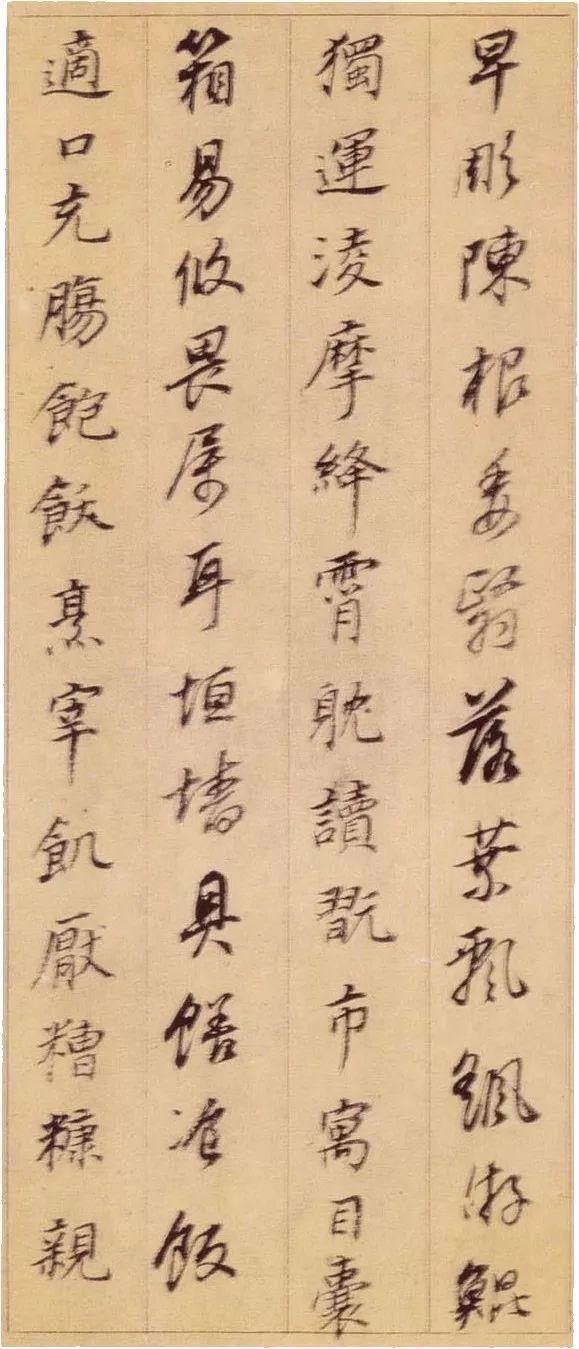 早彫陳根委翳落葉飄颻游鯤
獨運淩摩絳霄躭讀翫市寓目囊
箱易攸畏属耳垣墻具饍飡飯
適口充腸飽飫烹宰飢厭糟糠親